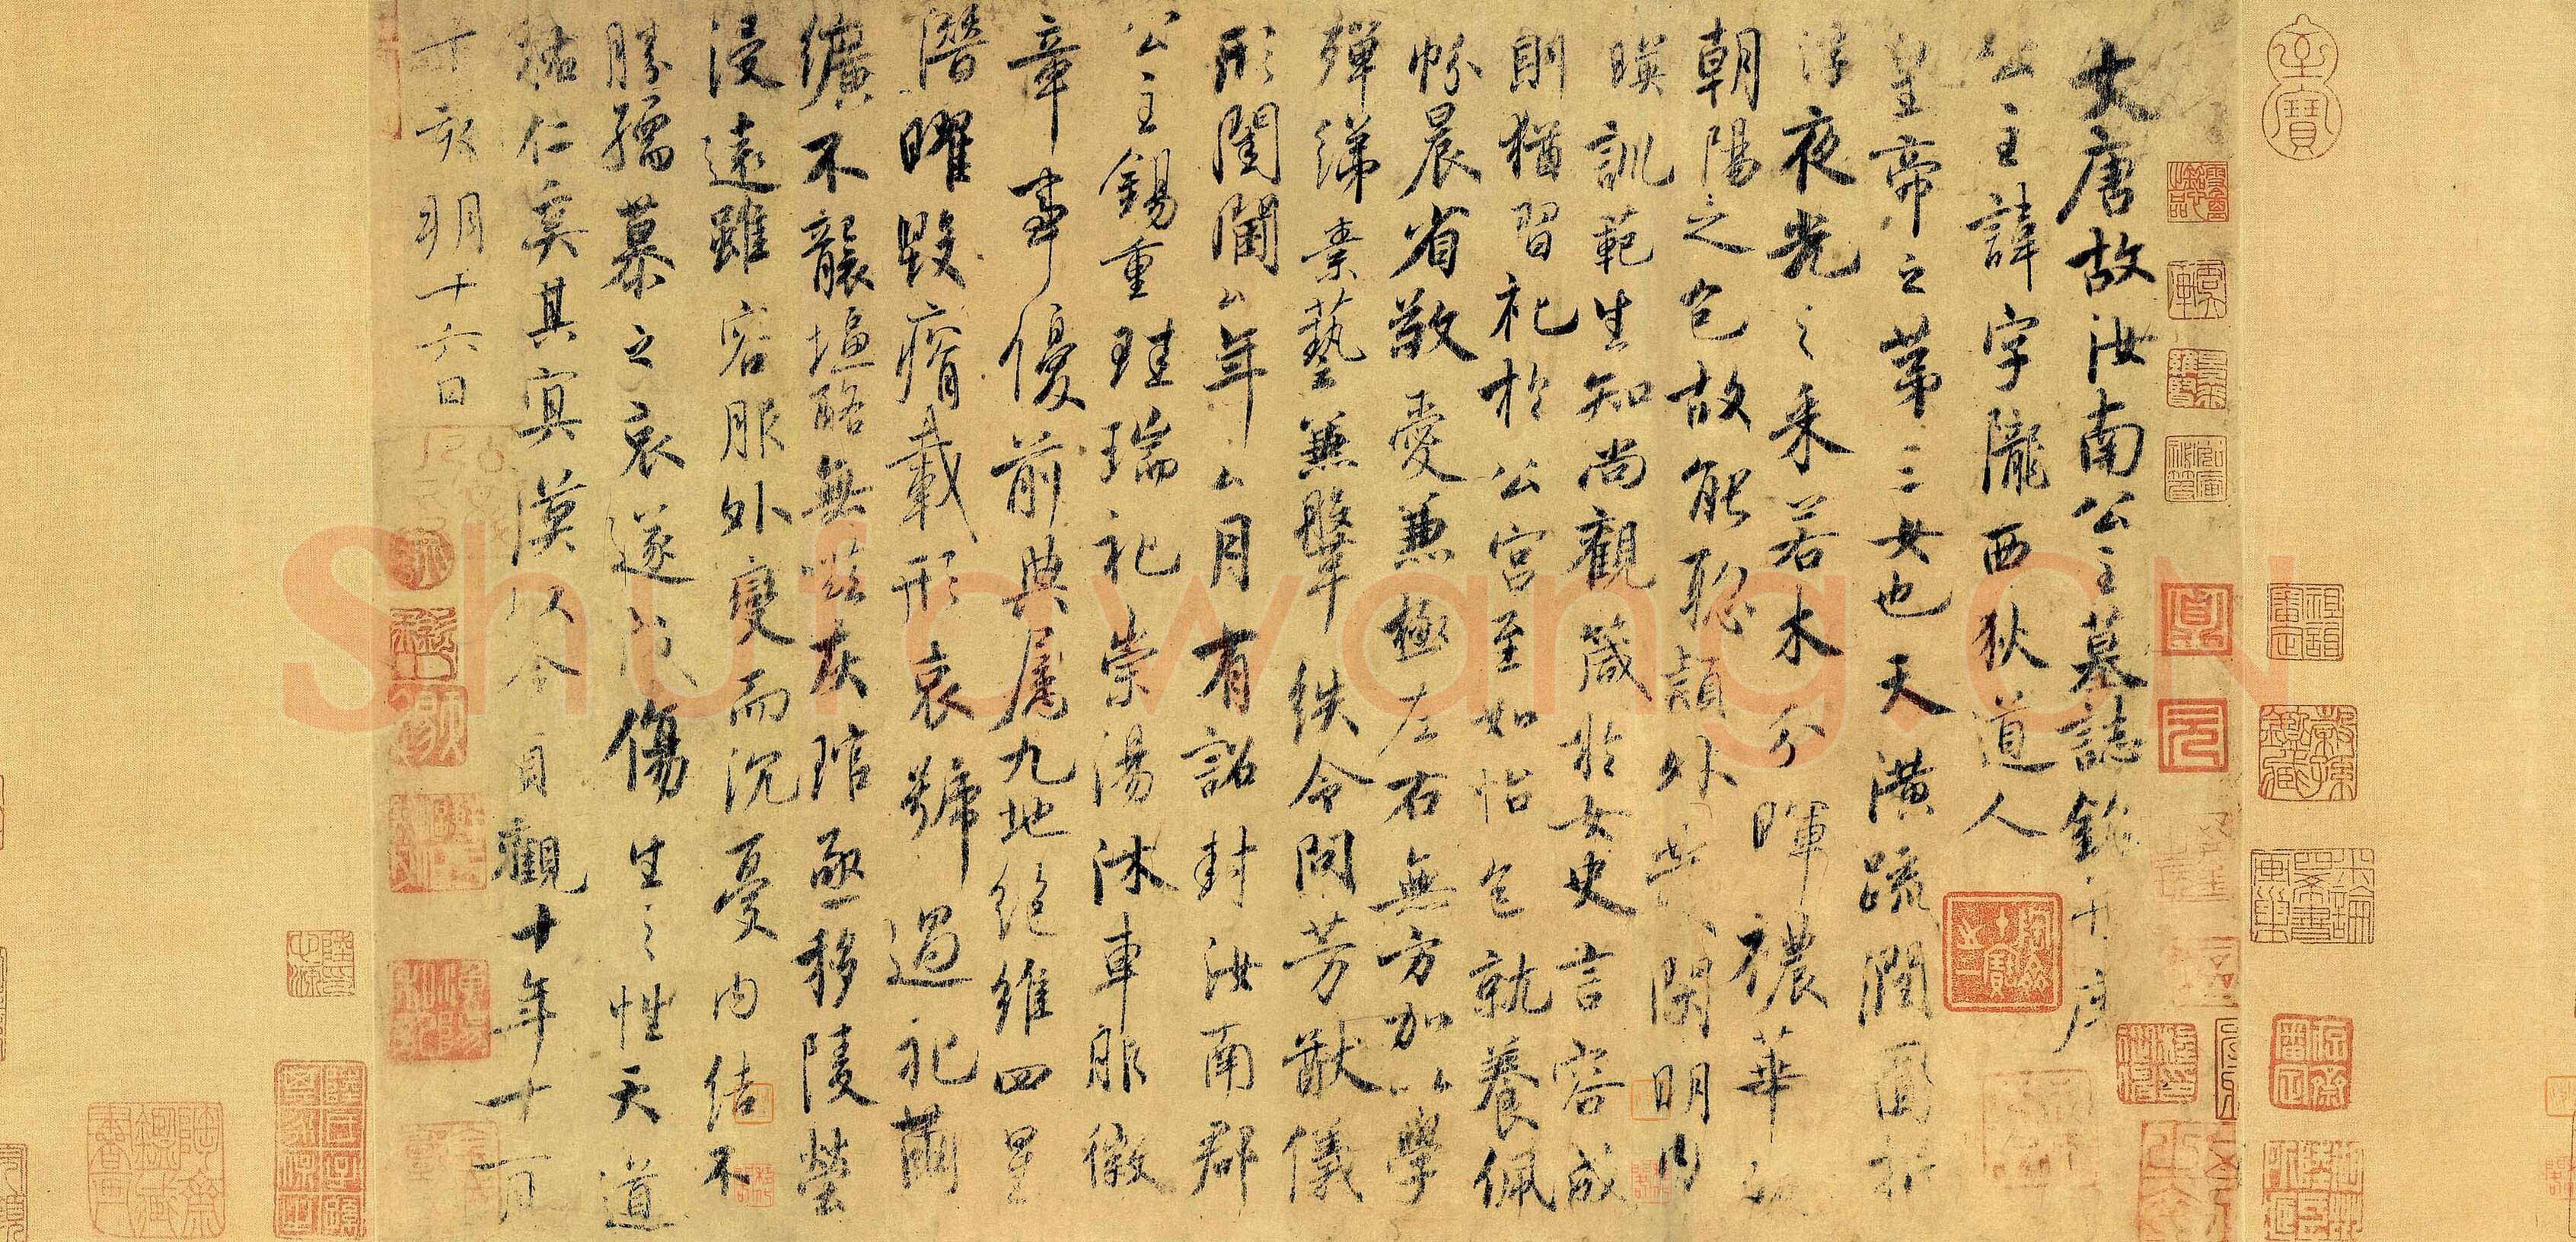 大唐故汝南公主墓誌銘并序
公主諱字隴西狄道人
皇帝之第三女也天潢疏潤圓折
浮夜光之采若木分暉穠華
朝陽之色故能聰穎外閑明內
暎訓範生知尚觀箴於女史言容成
則猶習礼於公宮至如怡色就養佩
帉晨省敬愛兼極左右無方加以學
殫綈素藝兼鞶紩令問芳猷儀
形閨閫厶年厶月有詔封汝南郡
公主錫重珪瑞礼崇湯沐車服徽
章事優前典屬九地絕維四星
潛曜毀瘠載形哀號過礼繭
纊不襲塩酪無嗞灰琯亟移陵塋
浸遠雖容服外變而沉憂內結不
勝孺慕之哀遂成傷生之性天道
祐仁奚其冥漠以今貞觀十年十一月
丁亥朔十六日
Shufawang.CN